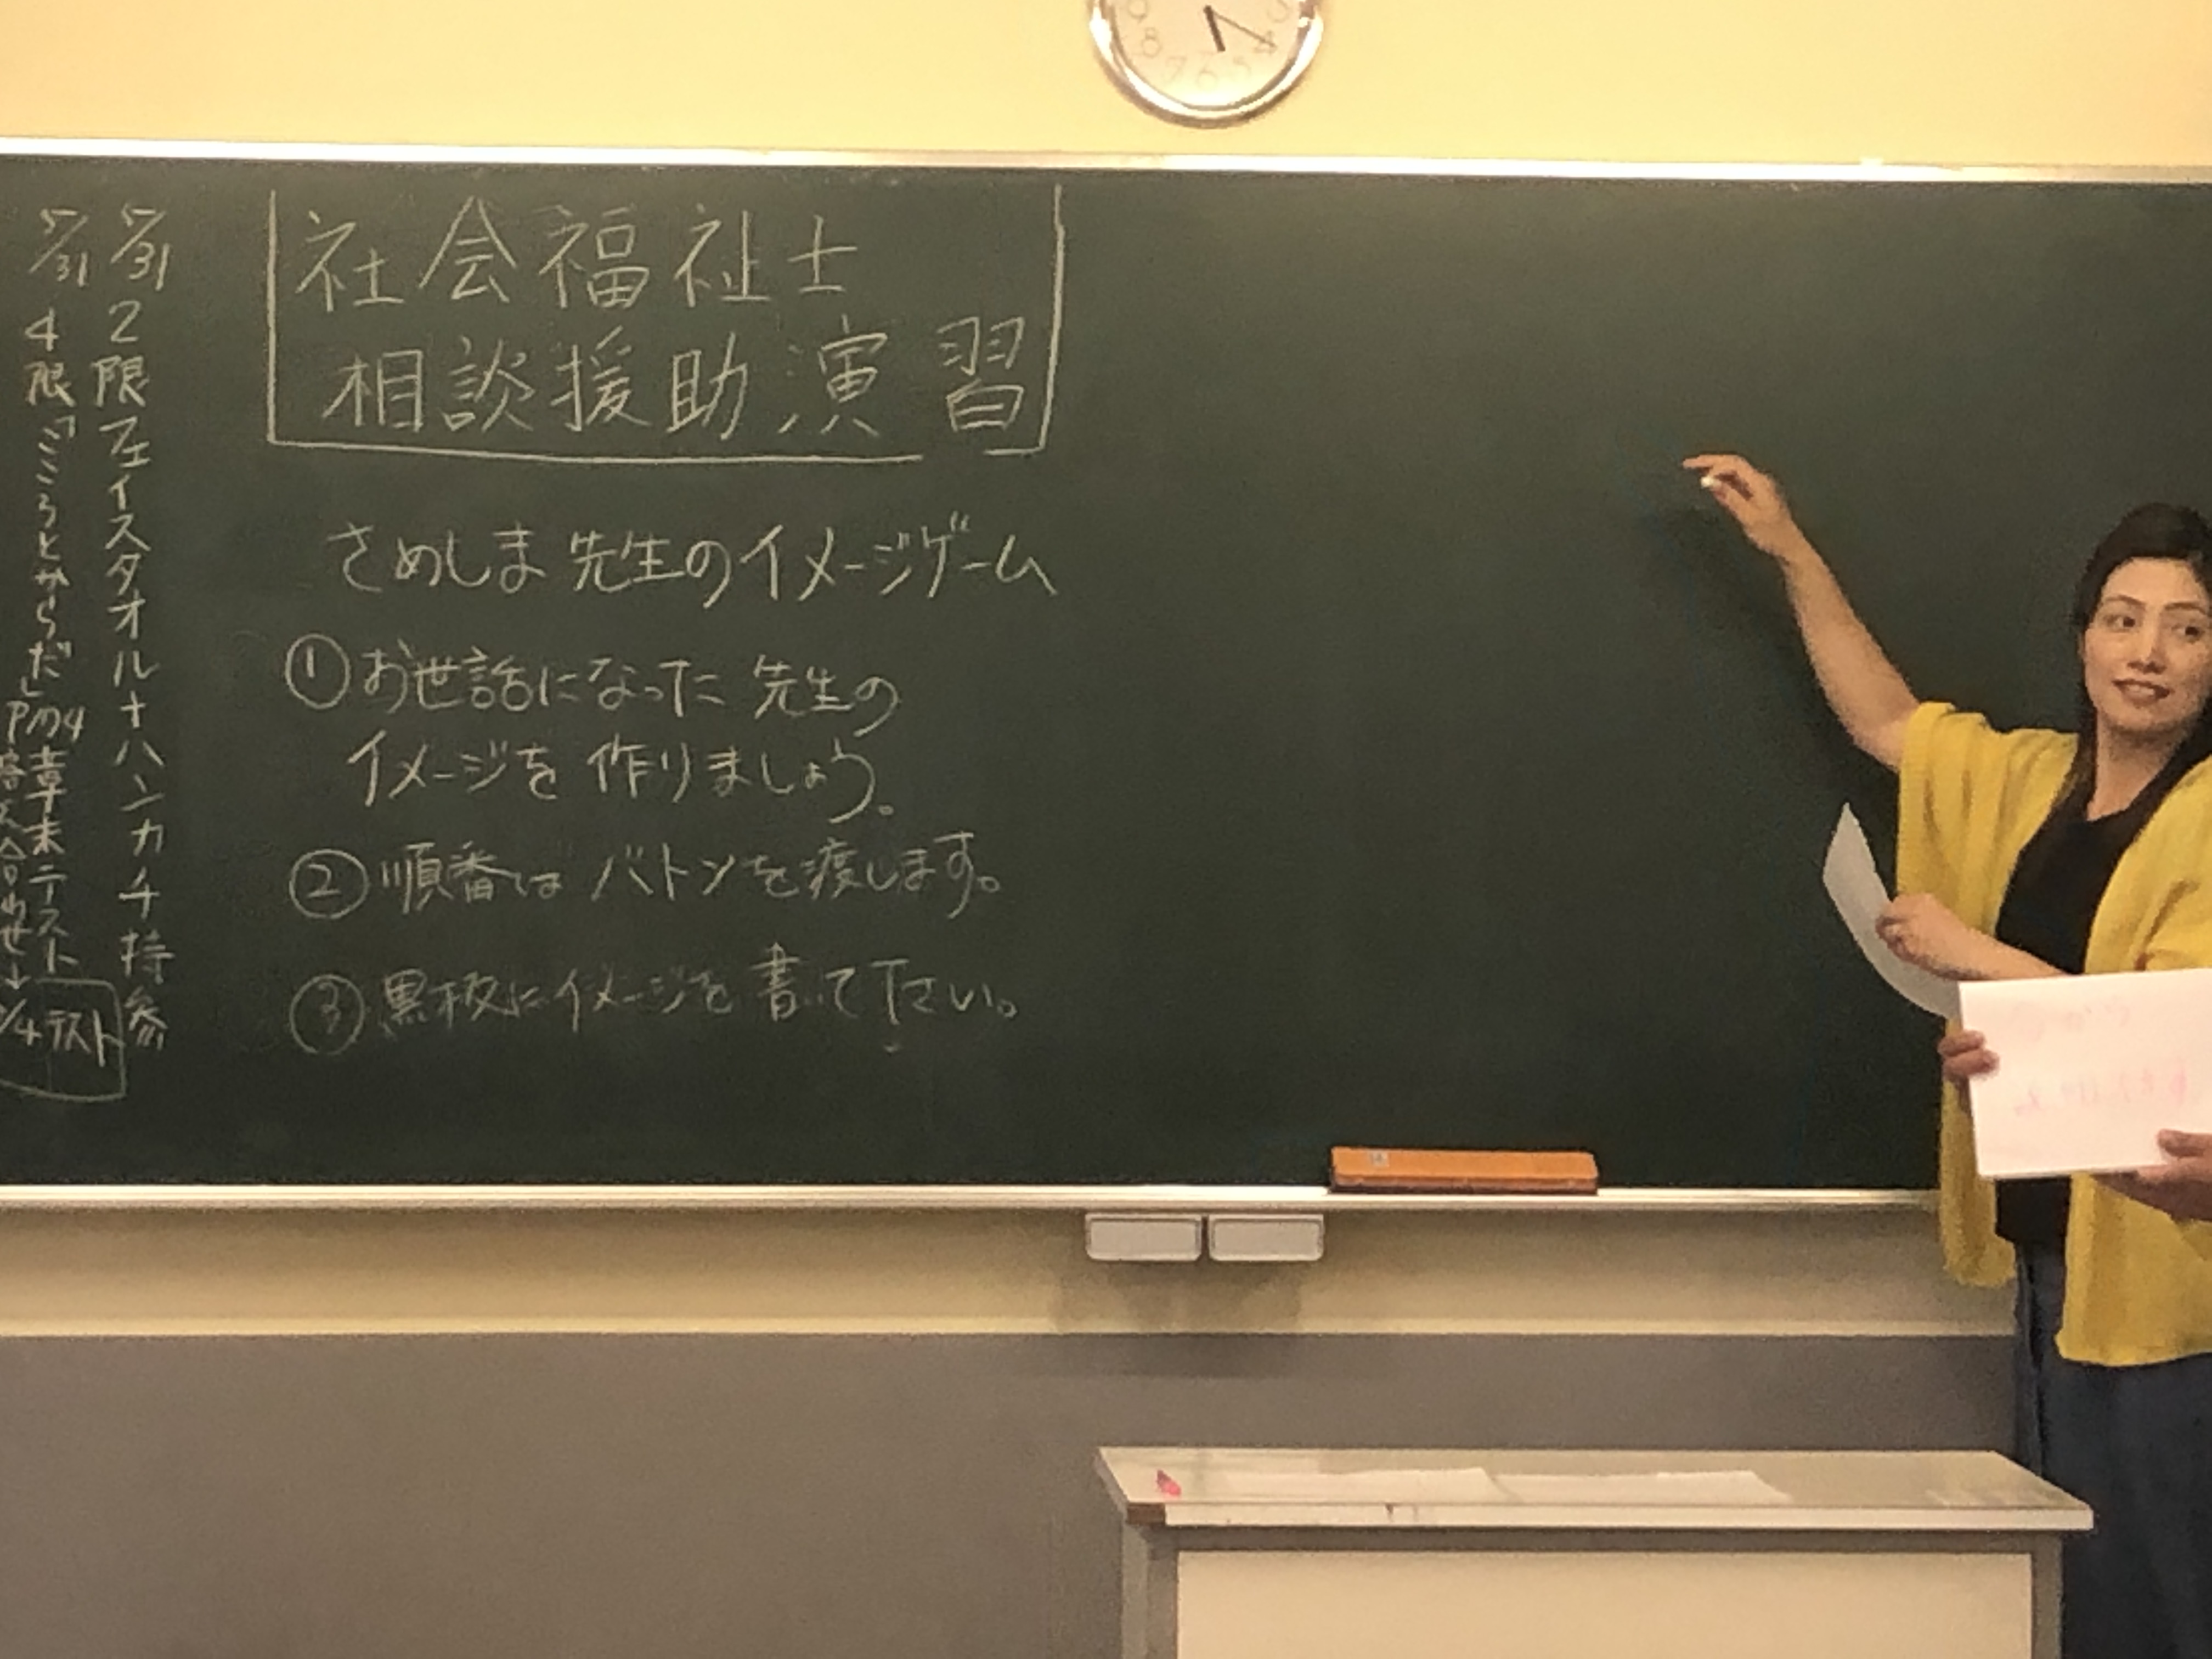 社会福祉士
相談援助演習
さめしま先生のイメージゲーム
①お世話になった先生の
イメージを作りましょう。
②順番はバトンを渡します。
③黒板にイメージを書いて下さい。
5/31 2限フェイスタオルナハンカチ持参
5/31 4限「こころとからだ」
章末テスト
合わせ↓
/4テスト
9
8
7
6
5
4
3